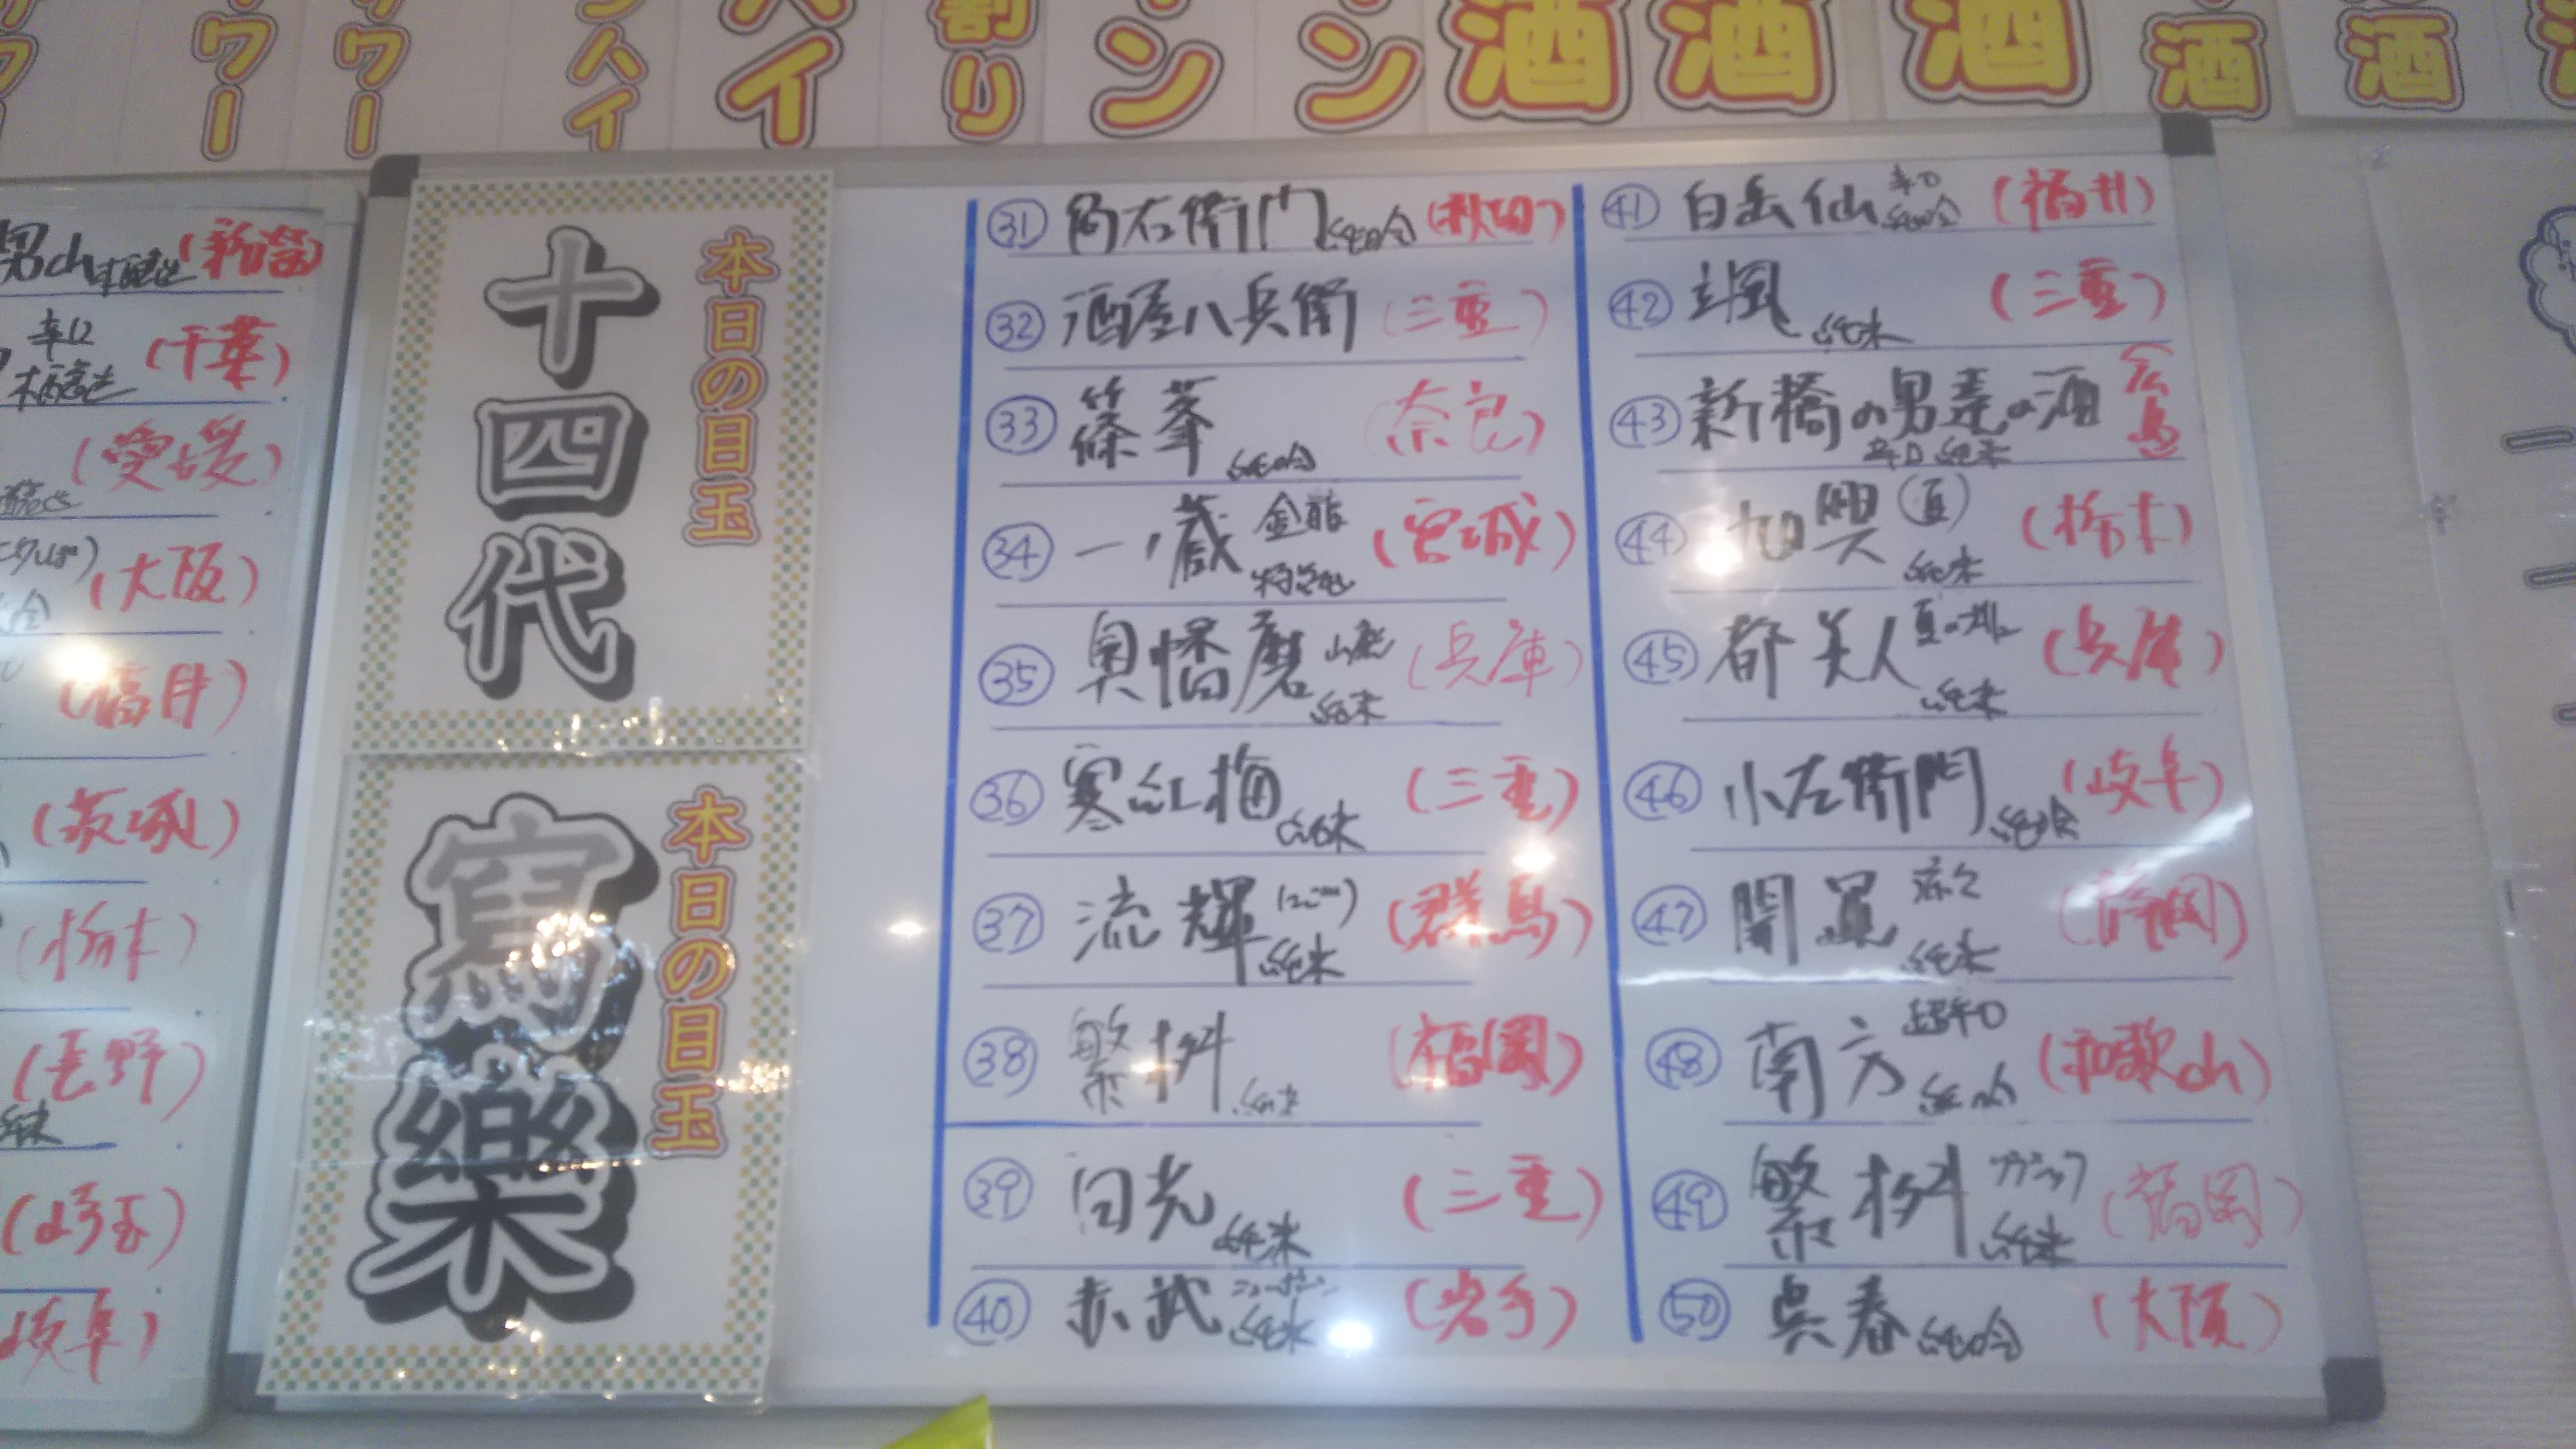 ワー
ワー
ンハイ
ハイ
割り
ン
ン
酒
酒
酒
酒
酒
男山 本醸造 (新潟)
辛口 本醸造 (千葉)
(愛媛)
(大阪)
(福井)
(茨城)
(栃木)
(長野)
純米
(埼玉)
(岐阜)
本日の目玉
十四代
本日の目玉
寫樂
㉛ 角右衛門 純吟 (秋田)
㉜ 酒屋八兵衛 (三重)
㉝ 篠峯 純吟 (奈良)
㉞ 一ノ蔵 金龍 (宮城)
㉟ 奥播磨 山廃 純米 (兵庫)
㊱ 寒紅梅 純米 (三重)
㊲ 流輝 純米 (群馬)
㊳ 繁桝 純米 (福岡)
㊴ 日光 純米 (三重)
㊵ 赤武 純米 (岩手)
㊶ 白岳仙 辛口 純吟 (福井)
㊷ 颯 純米 (三重)
㊸ 新橋の男達の酒 辛口 純米 広島
㊹ 純米 (栃木)
㊺ 都美人 純米 (兵庫)
㊻ 小左衛門 純吟 (岐阜)
㊼ 開運 純米 (静岡)
㊽ 南方 超辛口 純吟 (和歌山)
㊾ 繁桝 純米 (福岡)
㊿ 呉春 純吟 (大阪)